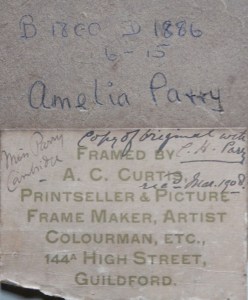 B 1800 D 1886
6-15
Amelia Parry
Miss Parry
Cambridge
Copy of Original with
C. H. Parry
FRAMED BY
A. C. CURTIS,
Mar. 1908
PRINTSELLER & PICTURE
FRAME MAKER, ARTIST
COLOURMAN, ETC.,
144A HIGH STREET,
GUILDFORD.